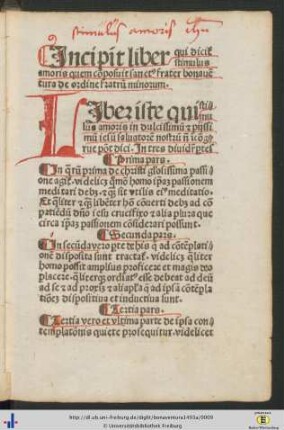 stimulus amoris
Incipit liber qui dicit̃
stimulus
amoris quem cõposuit sanctꝰ frater bonauẽ
tura de ordine fratrũ minorum.
Liber iste qui
sti
mu
lus amoris in dulcissimũ ⁊ pijssi
mũ iesū saluatorē nostrū
põt dici. In tres diuidit̃ ptes
Prima pars.
In prima de christi gl'osissima passi
one agit̃. videlicꝫ quõ homo ipaꝫ passionem
meditari debꝫ ⁊ sit vtilis eiꝰ meditatio.
Et qualiter ⁊ libēter hõ debꝫ ad cõ
patiēdū dño iesu crucifixo ⁊ alia plura que
circa ipaꝫ passionem cõsiderari possunt.
Secunda pars.
In secūda vero pte de his ad cõtēplati
onē disposita sunt tractat̃. videlicꝫ qualiter
homo possit amplius proficere et magis deo
placere. esse debeat ad deū
ad se ⁊ ad proximū ⁊ alia ad ipsā cõtēpla
tiõeꝫ dispositiua et inductiua sunt.
Tertia pars.
Tertia vero et vltima parte de ipsa con
templationis quiete prosequitur. videlicet
http://dl.ub.uni-freiburg.de/diglit/bonaventura1493a/0009
© Universitätsbibliothek Freiburg